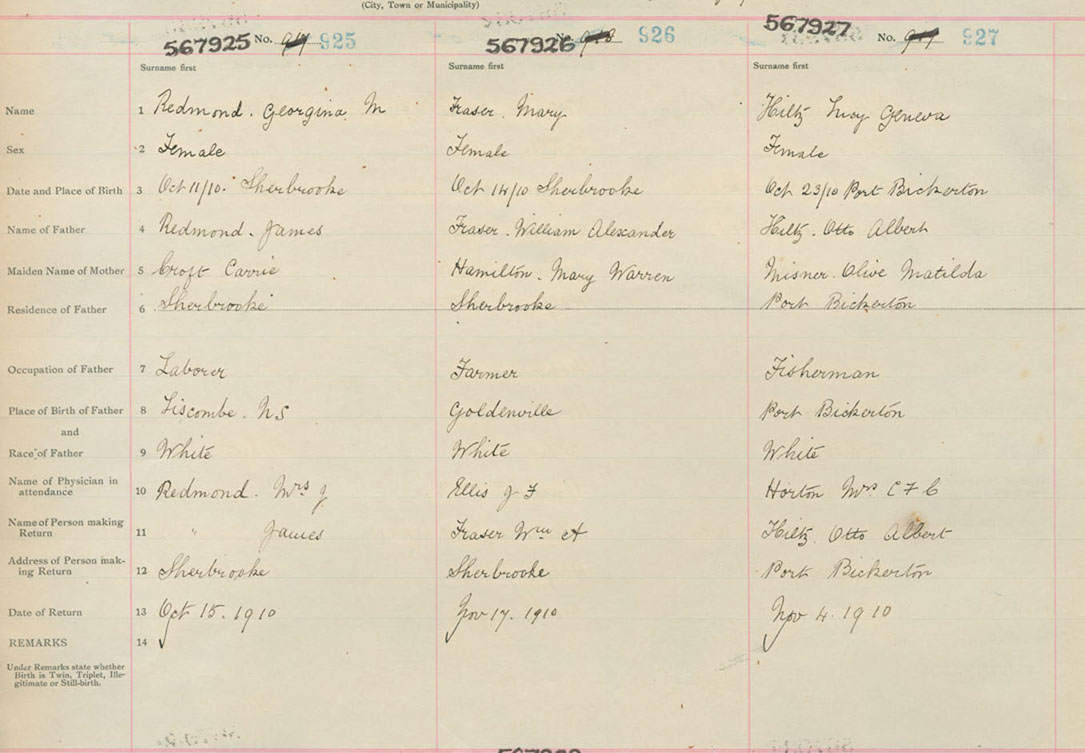 (City, Town or Municipality)
567925 No. 925
567926 No. 926
567927 No. 927
Surname first
Surname first
Surname first
Name 1 Redmond. Georgina M Fraser. Mary Hiltz Lucy Geneva
Sex 2 Female Female Female
Date and Place of Birth 3 Oct 11/10. Sherbrooke Oct 14/10 Sherbrooke Oct 23/10 Port Bickerton
Name of Father 4 Redmond. James Fraser. William Alexander Hiltz. Otto Albert
Maiden Name of Mother 5 Croft Carrie Hamilton. Mary Warren Misner. Olive Matilda
Residence of Father 6 Sherbrooke Sherbrooke Port Bickerton
Occupation of Father 7 Laborer Farmer Fisherman
Place of Birth of Father 8 Liscombe. NS Goldenville Port Bickerton
and
Race of Father 9 White White White
Name of Physician in
attendance 10 Redmond. Mrs J Ellis J F Horton Mrs C F C
Name of Person making
Return 11 " James Fraser Wm A Hiltz. Otto Albert
Address of Person mak-
ing Return 12 Sherbrooke Sherbrooke Port Bickerton
Date of Return 13 Oct 15. 1910 Nov 17. 1910 Nov 4. 1910
REMARKS 14
Under Remarks state whether
Birth is Twin, Triplet, Ille-
gitimate or Still-birth.